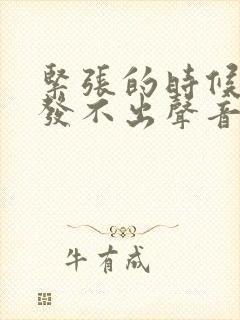 緊張的時候
發不出聲音
牛有成